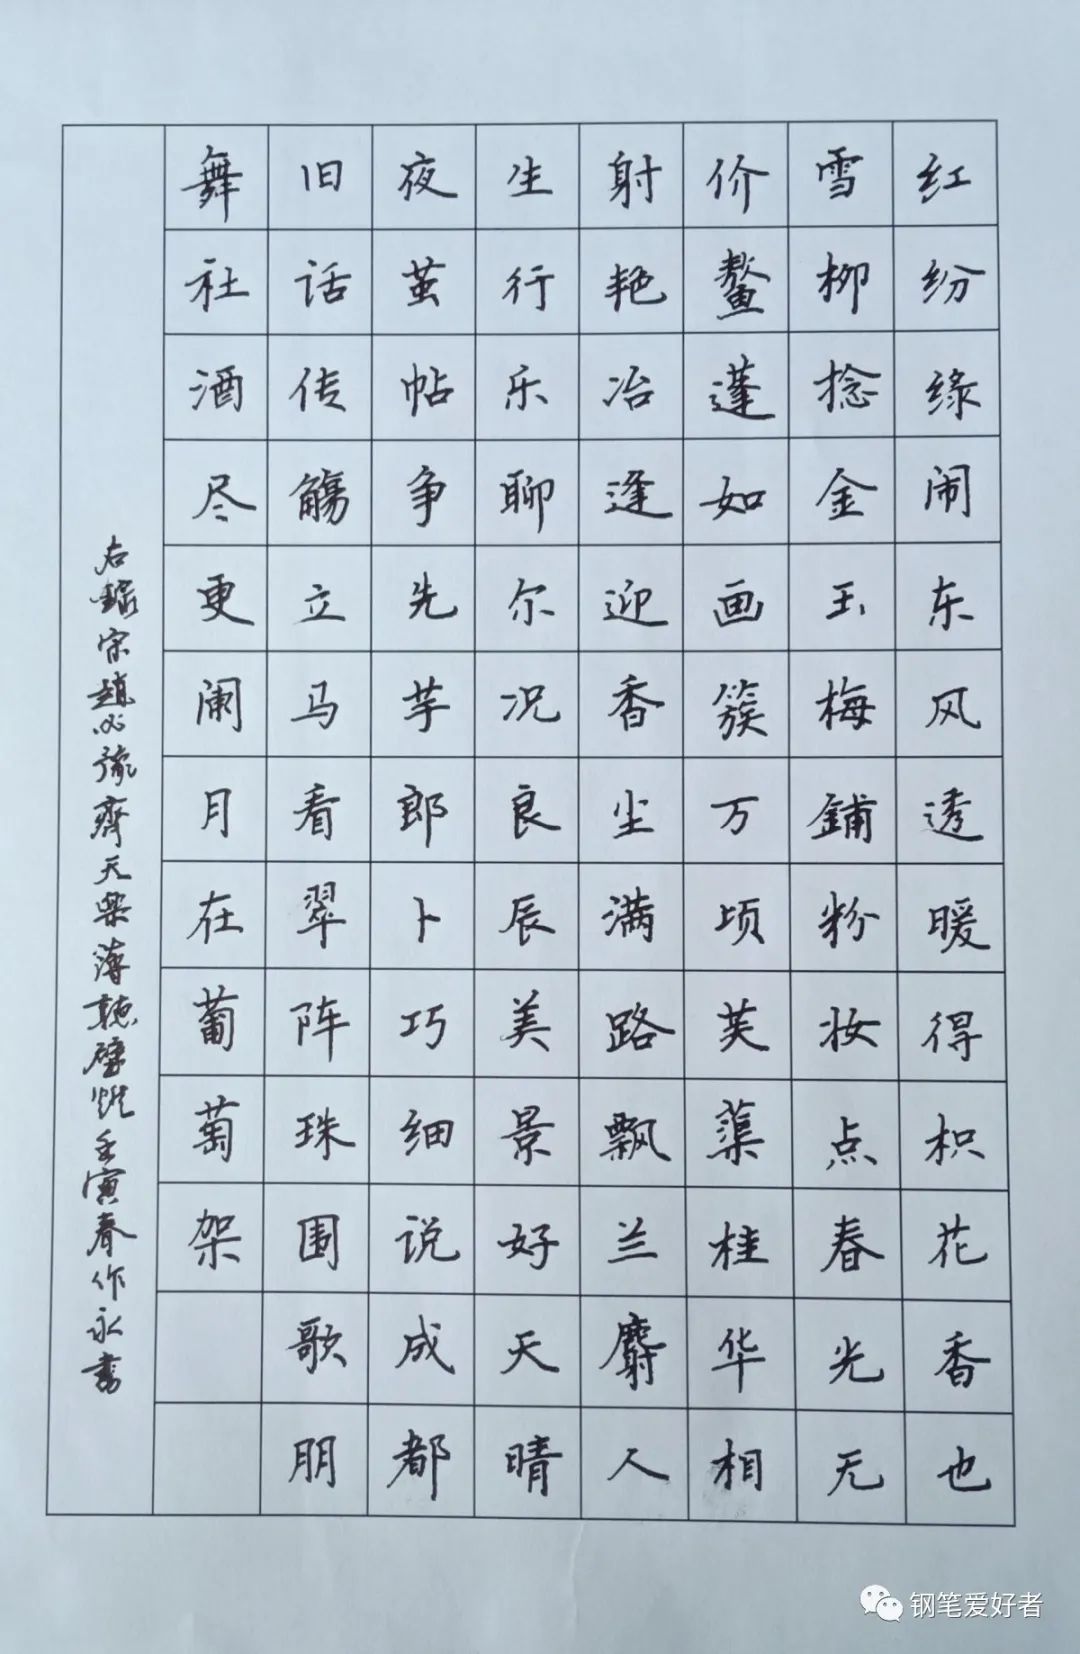 红纷缘闹东风透暖得枳花香也
雪柳捻金玉梅铺粉妆点春光无
价鳌蓬如画簇万顷芙蕖桂华相
射艳冶逢迎香尘满路飘兰麝人
生行乐聊尔况良辰美景好天晴
夜茧帖争先芋郎卜巧细说成都
旧话传觞立马看翠阵珠围歌朋
舞社酒尽更阑月在葡萄架
右录宋赵必𤩪齐天乐薄聴壁灯壬寅春作永书
钢笔爱好者